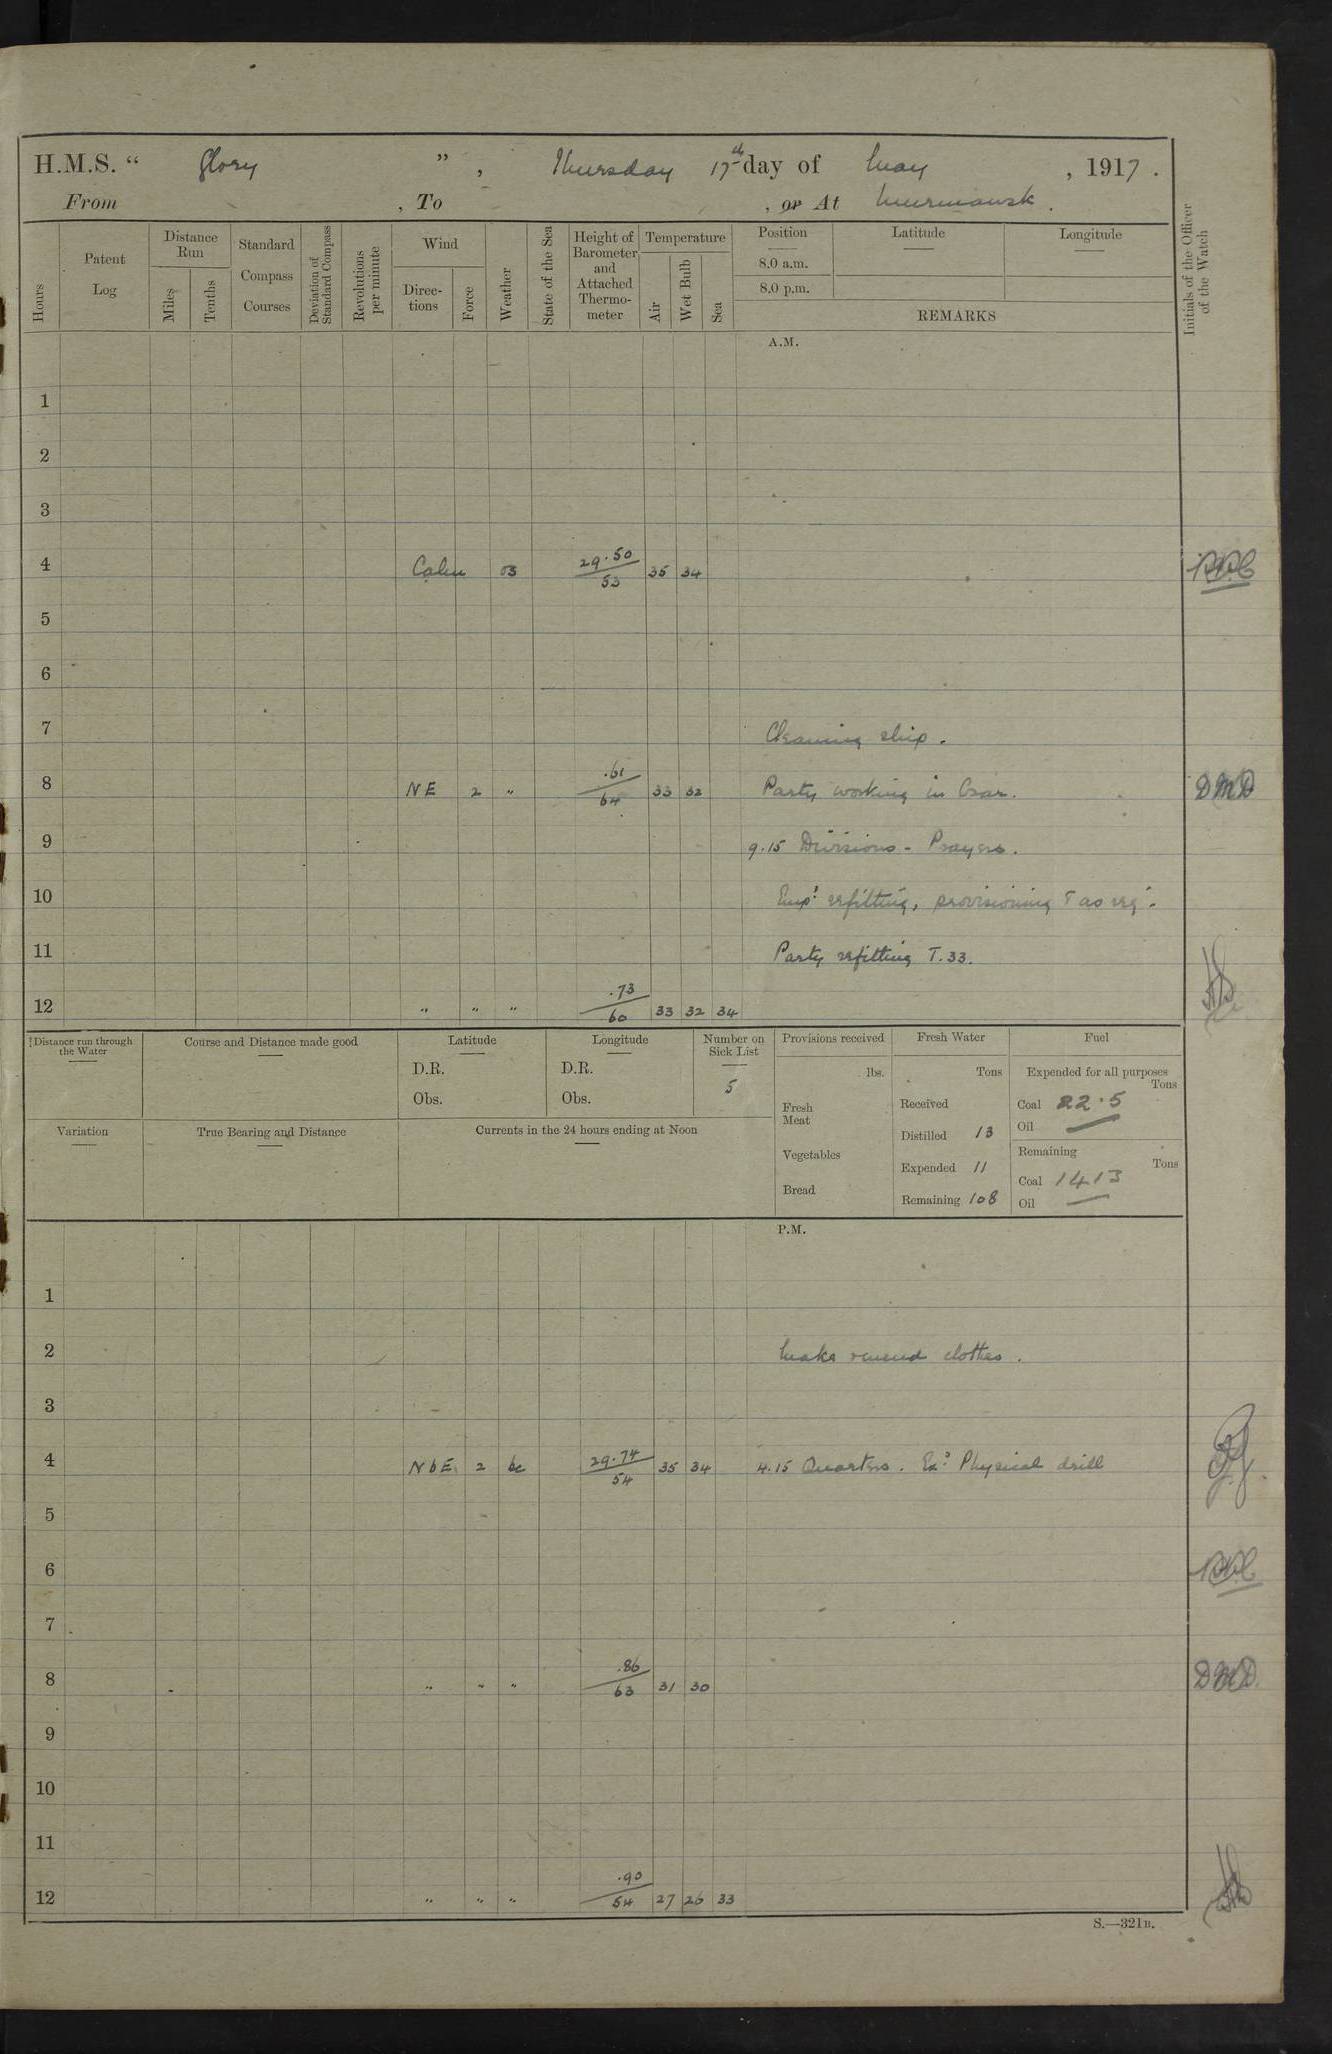 H.M.S. “ Glory ” , Thursday 17th day of May , 1917 .
From , To , or At Murmansk .
Hours
Patent Log
Distance Run
Miles
Tenths
Standard Compass Courses
Deviation of Standard Compass
Revolutions per minute
Wind
Direc-tions
Force
Weather
State of the Sea
Height of Barometer and Attached Thermo-meter
Temperature
Air
Wet Bulb
Sea
Position
8.0 a.m.
8.0 p.m.
Latitude
Longitude
REMARKS
Initials of the Officer of the Watch
A.M.
1
2
3
4 Calm 29.50/53 35 34
5
6
7 Cleaning ship .
8 NE 2 " .61/64 33 32 Party working in Czar. DMD
9 9.15 Divisions - Prayers .
10 Emp: refitting, provisioning & as req:
11 Party refitting T.33.
12 " " " .73/60 33 32 34
Distance run through the Water
Course and Distance made good
Latitude
D.R.
Obs.
Longitude
D.R.
Obs.
Number on Sick List
5
Provisions received
lbs.
Fresh Meat
Vegetables
Bread
Fresh Water
Tons
Received
Distilled 13
Expended 11
Remaining 108
Fuel
Expended for all purposes
Tons
Coal 22.5
Oil —
Remaining
Tons
Coal 1413
Oil —
Variation
True Bearing and Distance
Currents in the 24 hours ending at Noon
P.M.
1
2 Make & mend clothes .
3
4 NbE 2 bc 29.74/54 35 34 4.15 Quarters . Ex: Physical drill
5
6
7
8 " " " .86/63 31 30 DMD
9
10
11
12 " " " .90/54 27 26 33
S.—321B.